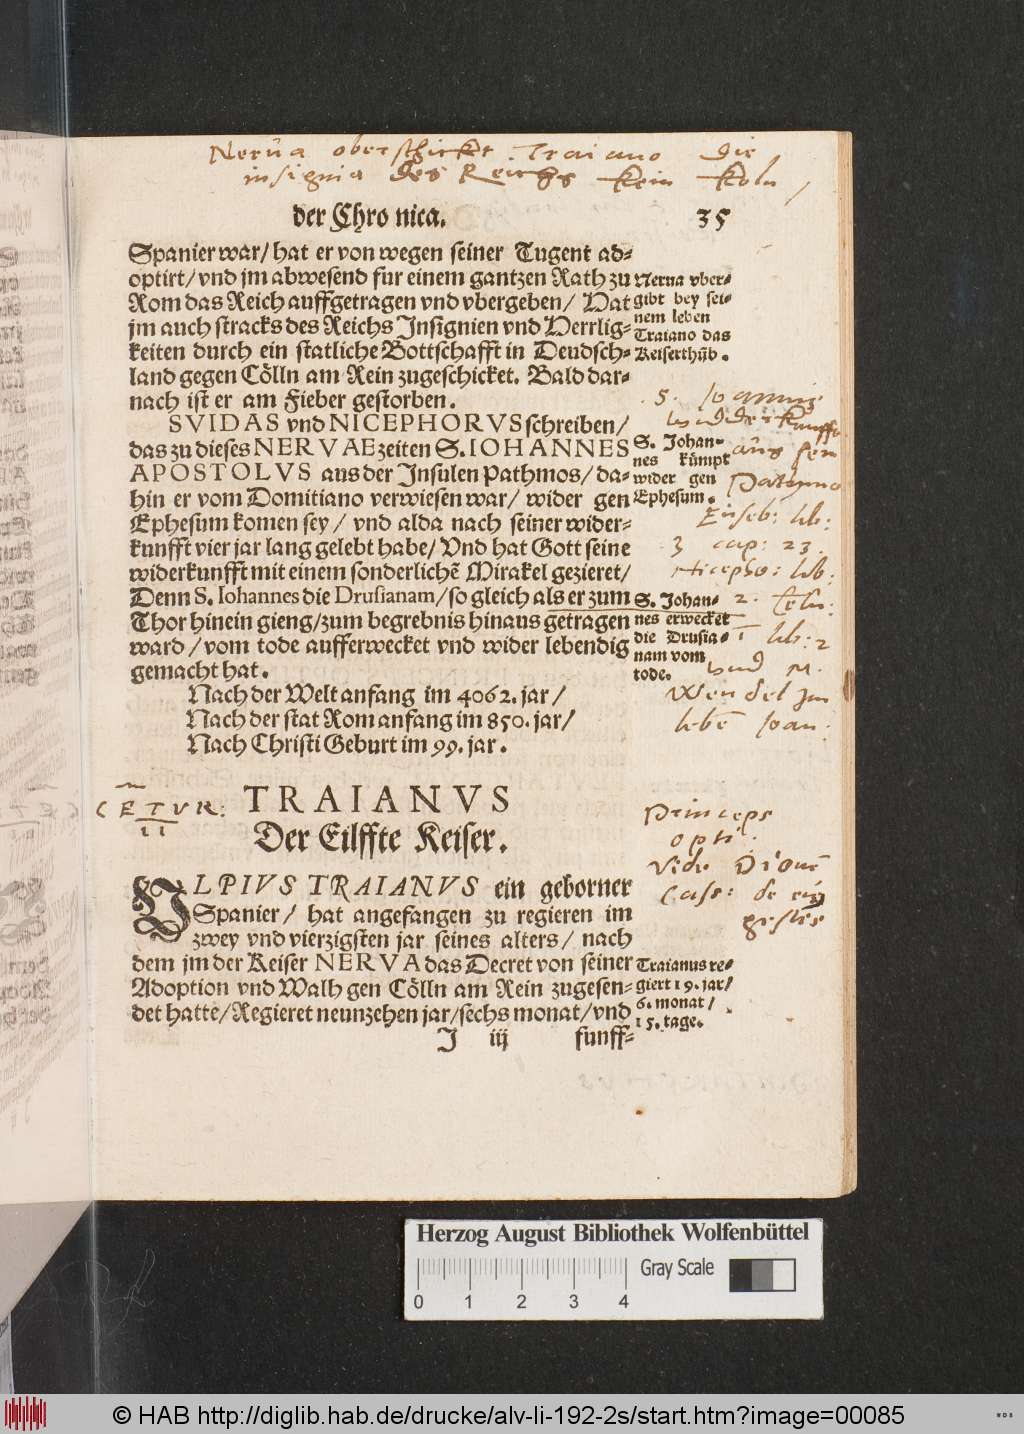 Nerua oberschickt Traiano die
insignia des Reichs kein Koln /
der Chro nica. 35
Spanier war / hat er von wegen seiner Tugent ad=
optirt / vnd jm abwesend fur einem gantzen Rath zu
Rom das Reich auffgetragen vnd vbergeben / Hat
jm auch stracks des Reichs Insignien vnd Herrlig=
keiten durch ein statliche Bottschafft in Deudsch=
land gegen Cölln am Rein zugeschicket. Bald dar=
nach ist er am Fieber gestorben.
Nerua vber=
gibt bey sei=
nem leben
Traiano das
Keiserthüb.
SVIDAS vnd NICEPHORVS schreiben /
das zu dieses NERVAE zeiten S. IOHANNES
APOSTOLVS aus der Insulen Pathmos / da=
hin er vom Domitiano verwiesen war / wider gen
Ephesum komen sey / vnd alda nach seiner wider=
kunfft vier jar lang gelebt habe / Vnd hat Gott seine
widerkunfft mit einem sonderlichē Mirakel gezieret /
Denn S. Iohannes die Drusianam / so gleich als er zum
Thor hinein gieng / zum begrebnis hinaus getragen
ward / vom tode aufferwecket vnd wider lebendig
gemacht hat.
S. Johan=
nes kümpt
wider gen
Ephesum.
S. Johan=
nes erwecket
die Drusia=
nam vom
tode.
S. Joannis
widderkunfft
aus
Pathmo
Euseb: lib:
3 cap: 23.
Nicepho: lib:
2.
lib: 2
vnd
Wendel im
lebē Joan:
Nach der Welt anfang im 4062. jar /
Nach der stat Rom anfang im 850. jar /
Nach Christi Geburt im 99. jar.
CETVR:
11
TRAIANVS
Der Eilffte Keiser.
Princeps
opti.
Vide Dionē
Cass: de
gestis
VLPIVS TRAIANVS ein geborner
Spanier / hat angefangen zu regieren im
zwey vnd vierzigsten jar seines alters / nach
dem jm der Keiser NERVA das Decret von seiner
Adoption vnd Walh gen Cölln am Rein zugesen=
det hatte / Regieret neunzehen jar / sechs monat / vnd
Traianus re=
giert 19. jar /
6. monat /
15. tage.
J iij funff=
Herzog August Bibliothek Wolfenbüttel
Gray Scale
0 1 2 3 4
© HAB http://diglib.hab.de/drucke/alv-li-192-2s/start.htm?image=00085